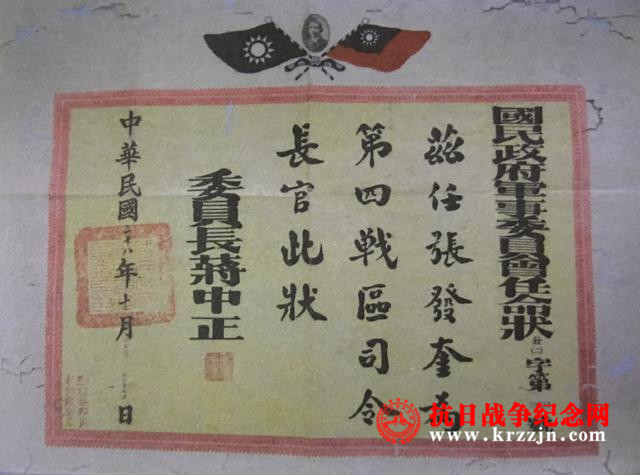 國民政府軍事委員會任命狀 字第 號
茲任張發奎為
第四戰區司令
長官此狀
委員長蔣中正
中華民國二十八年十月 日
抗日战争纪念网
www.krzzjn.com